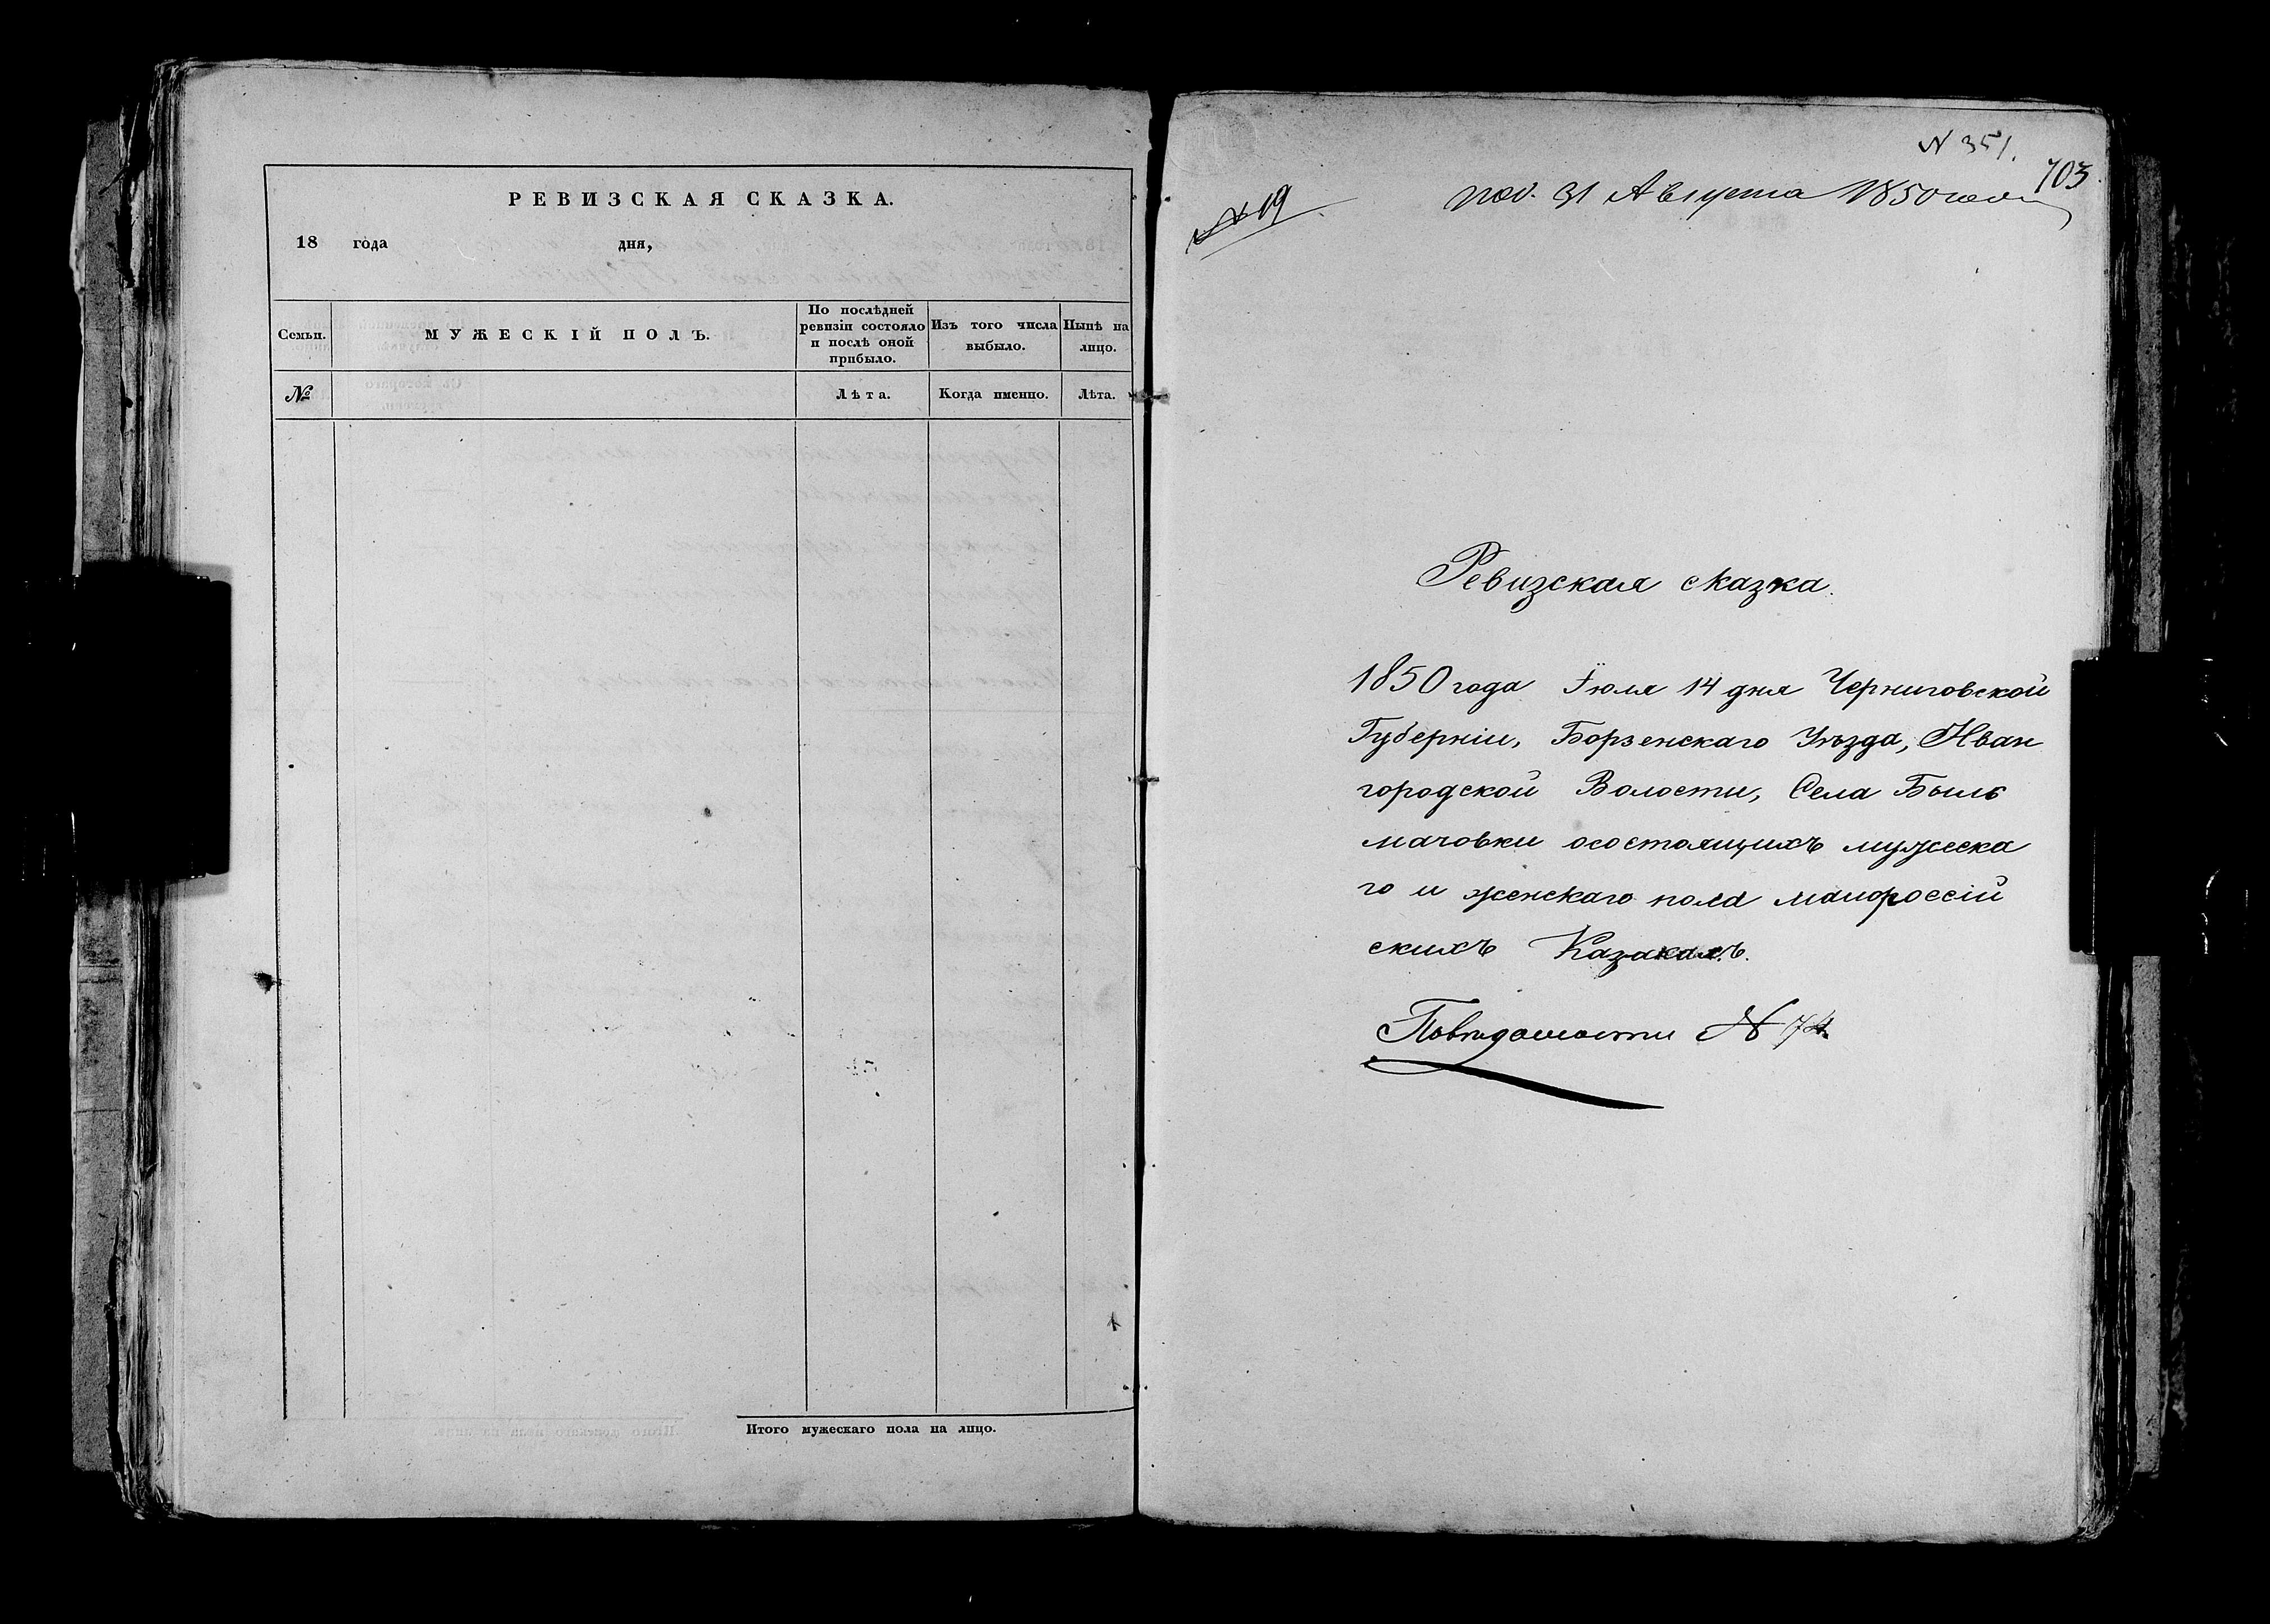 РЕВИЗСКАЯ СКАЗКА.
18 года дня,
Семьи. МУЖЕСКІЙ ПОЛЪ. По послѣдней ревизіи состояло и послѣ оной прибыло. Изъ того числа выбыло. Нынѣ на лицо.
№ Лѣта. Когда именно. Лѣта.
Итого мужескаго пола на лицо.
N 351.
703
пол. 31 Августа 1850 года
№ 19
Ревизская сказка.
1850 года Іюля 14 дня Черниговской
Губерніи, Борзенскаго Уѣзда, Иван
городской Волости, Села Быль
мачовки осостоящихъ мужеска
го и женскаго пола малороссій
скихъ Казакахъ.
Повѣдомости № 74.